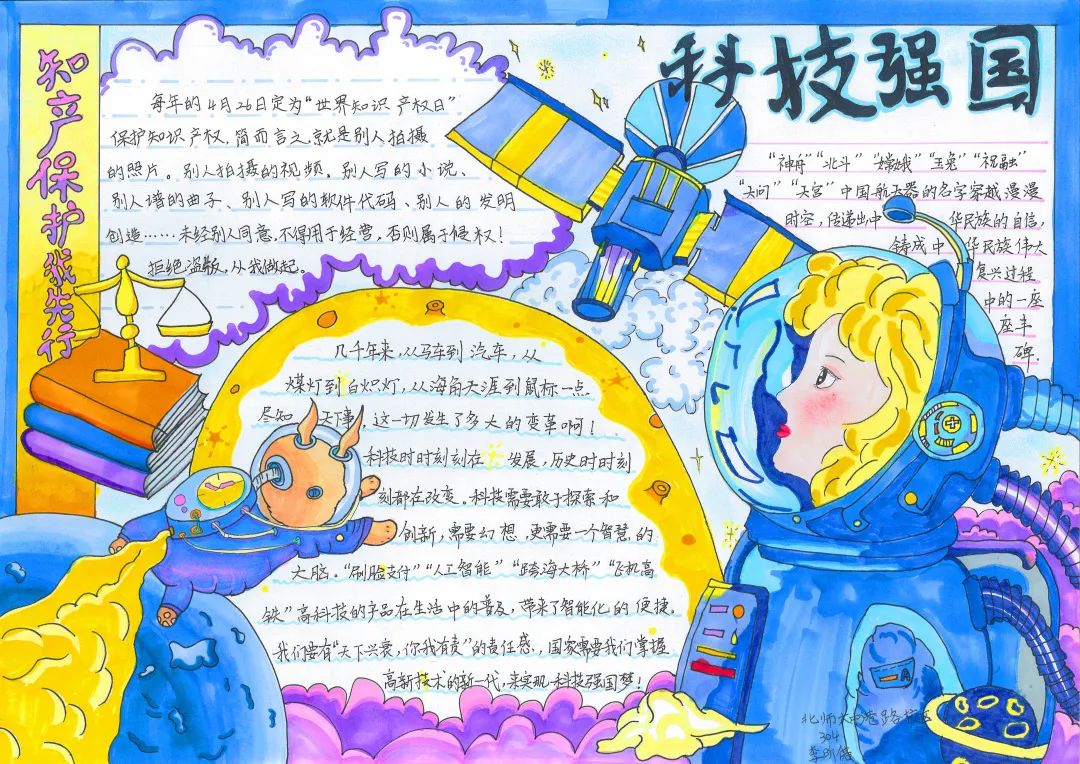 科技强国
知产保护我先行
每年的4月26日定为“世界知识产权日”
保护知识产权,简而言之,就是别人拍摄
的照片。别人拍摄的视频,别人写的小说、
别人谱的曲子、别人写的软件代码、别人的发明
创造……未经别人同意,不得用于经营,否则属于侵权!
拒绝盗版,从我做起。
“神舟”“北斗”“嫦娥”“玉兔”“祝融”
“天问”“天宫”中国航天器的名字穿越漫漫
时空,传递出中华民族的自信,
铸成中华民族伟大
复兴过程
中的一座
座丰
碑.
几千年来,从马车到汽车,从
煤灯到白炽灯,从海角天涯到鼠标一点
尽知天下事,这一切发生了多大的变革啊!
科技时时刻刻在发展,历史时时刻
刻都在改变。科技需要敢于探索和
创新,需要幻想,更需要一个智慧的
大脑。“刷脸支付”“人工智能”“跨海大桥”“飞机高
铁”高科技的产品在生活中的普及,带来了智能化的便捷。
我们要有“天下兴衰,你我有责”的责任感,国家需要我们掌握
高新技术的新一代,来实现科技强国梦!
北师大 路校区
304
李